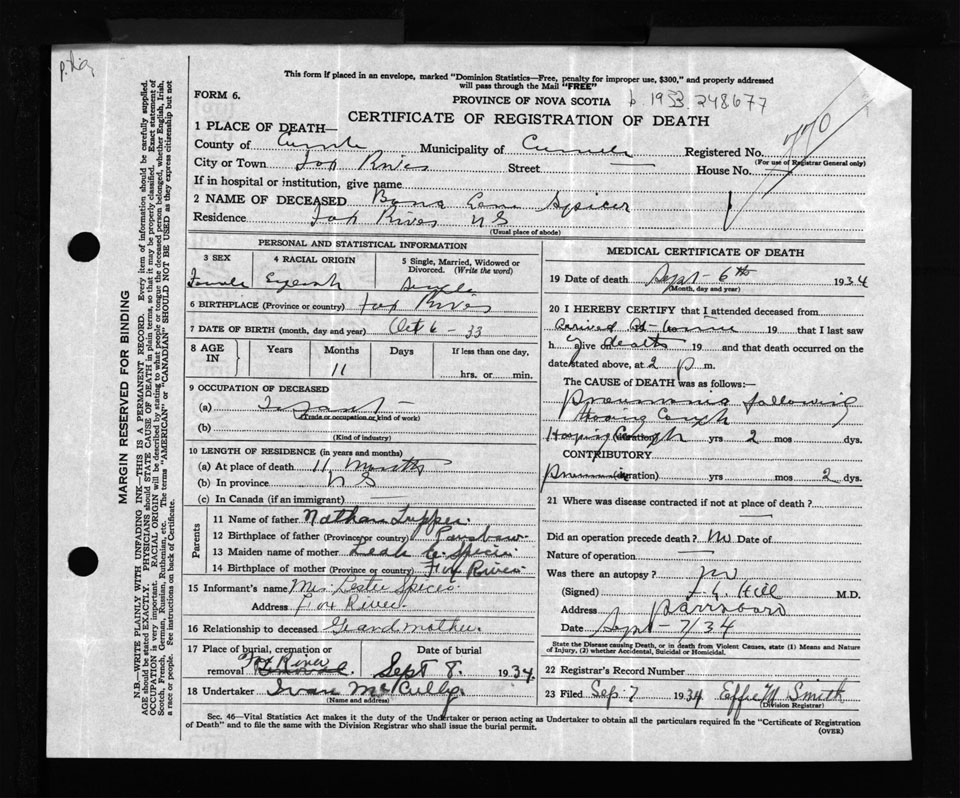 This form if placed in an envelope, marked "Dominion Statistics—Free, penalty for improper use, $300," and properly addressed
will pass through the Mail "FREE"
FORM 6.
PROVINCE OF NOVA SCOTIA b. 1953. 248677
CERTIFICATE OF REGISTRATION OF DEATH
770
1 PLACE OF DEATH—
County of Municipality of Registered No.
(For use of Registrar General only)
City or Town Fox River Street House No.
If in hospital or institution, give name
2 NAME OF DECEASED Spicer
Residence Fox River NS
(Usual place of abode)
PERSONAL AND STATISTICAL INFORMATION
3 SEX 4 RACIAL ORIGIN 5 Single, Married, Widowed or Divorced. (Write the word)
Female English Single
6 BIRTHPLACE (Province or country) Fox River
7 DATE OF BIRTH (month, day and year) Oct 6 - 33
8 AGE IN Years Months Days If less than one day,
11 hrs. or min.
9 OCCUPATION OF DECEASED
(a) Infant
(Trade or occupation or kind of work)
(b)
(Kind of industry)
10 LENGTH OF RESIDENCE (in years and months)
(a) At place of death 11 Months
(b) In province NS
(c) In Canada (if an immigrant) —
Parents
11 Name of father Nathan Tupper
12 Birthplace of father (Province or country) Parrsboro
13 Maiden name of mother Leah Spicer
14 Birthplace of mother (Province or country) Fox River
15 Informant's name Mrs Lester Spicer
Address Fox River
16 Relationship to deceased Grandmother
17 Place of burial, cremation or removal Fox River Date of burial Sept 8. 1934.
18 Undertaker Ivan McCully
(Name and address)
MEDICAL CERTIFICATE OF DEATH
19 Date of death Sept - 6th 1934
(Month, day and year)
20 I HEREBY CERTIFY that I attended deceased from
19 that I last saw
h alive on death 19 and that death occurred on the
date stated above, at 2 p m.
The CAUSE of DEATH was as follows:—
Pneumonia following
Hooping Cough
Hooping Cough (duration) yrs 2 mos dys.
CONTRIBUTORY
pneumonia (duration) yrs mos 2 dys.
21 Where was disease contracted if not at place of death?
—
Did an operation precede death? No Date of
Nature of operation —
Was there an autopsy? no
(Signed) Hill M.D.
Address Parrsboro
Date Sept - 7/34
State the Disease causing Death, or in death from Violent Causes, state (1) Means and Nature
of Injury, (2) whether Accidental, Suicidal or Homicidal.
22 Registrar's Record Number
23 Filed Sep 7 1934 Effie M Smith
(Division Registrar)
Sec. 46—Vital Statistics Act makes it the duty of the Undertaker or person acting as Undertaker to obtain all the particulars required in the "Certificate of Registration
of Death" and to file the same with the Division Registrar who shall issue the burial permit.
(OVER)
MARGIN RESERVED FOR BINDING
N.B.—WRITE PLAINLY WITH UNFADING INK—THIS IS A PERMANENT RECORD. Every item of information should be carefully supplied.
AGE should be stated EXACTLY. PHYSICIANS should STATE CAUSE OF DEATH in plain terms, so that it may be properly classified. Exact statement of
OCCUPATION is very important. RACIAL ORIGIN will be described by stating to what people or tongue the deceased person belonged, whether English, Irish,
Scotch, French, German, Russian, Ruthenian, etc. The terms "AMERICAN" or "CANADIAN" SHOULD NOT BE USED as they express citizenship but not
a race or people. See instructions on back of Certificate.